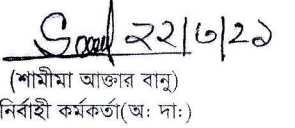 ২২/৩/২১
(শামীমা আক্তার বানু)
নির্বাহী কর্মকর্তা(অ: দা:)